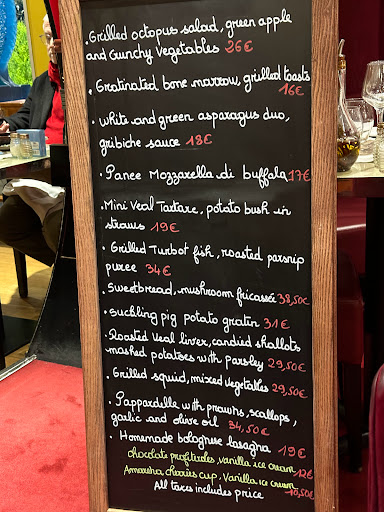 . Grilled octopus salad, green apple
and Crunchy Vegetables 26€
. Gratinated bone marrow, grilled toasts
16€
. white and green asparagus duo,
gribiche sauce 18€
. Panee Mozzarella di buffala 17€
. Mini Veal Tartare, potato bush in
straws 19€
. Grilled Turbot fish, roasted parsnip
puree 34€
. Sweetbread, mushroom fricassée 38,50€
. suckling pig potato gratin 31€
. Roasted Veal liver, candied shallots
mashed potatoes with parsley 29,50€
. Grilled squid, mixed vegetables 29,50€
. Pappardelle with prawns, scallops,
garlic and olive oil 34,50€
. Homemade bolognese lasagna 19€
chocolate profiteroles, vanilla ice cream 12€
Amarena cherries cup, Vanilla ice cream
All taxes includes price 10,50€